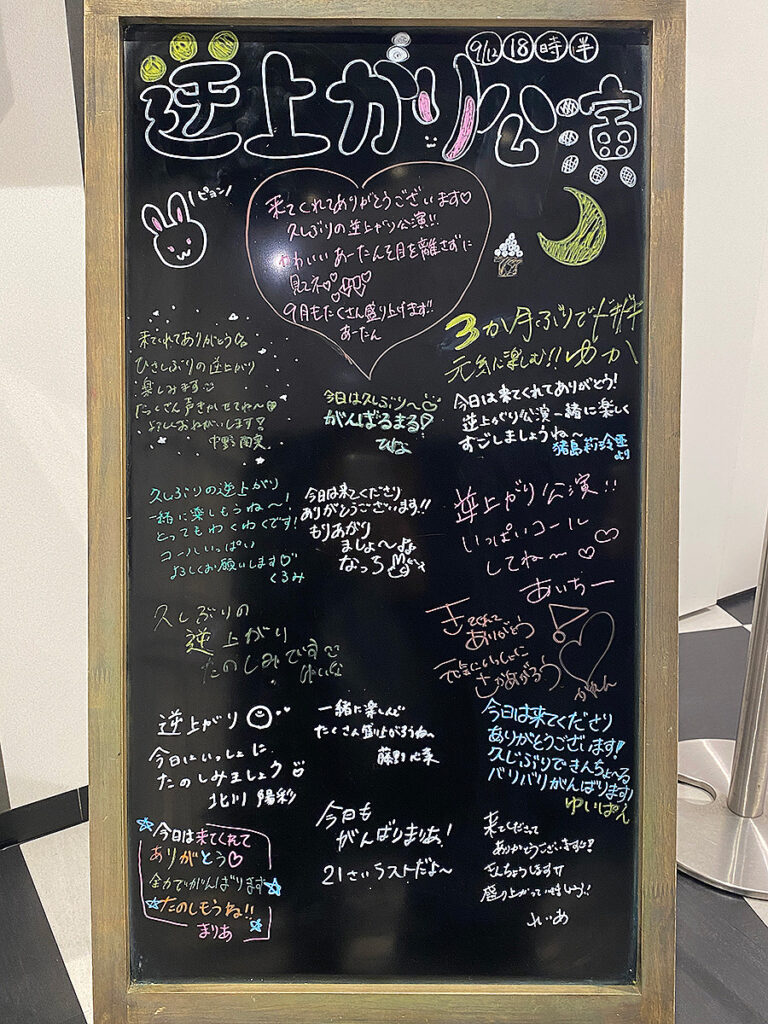 9/12 18時半
逆上がり公演
ピョン
来てくれてありがとうございます♡
久しぶりの逆上がり公演!!
かわいいあーたんを目を離さずに
見てネ♡
9月もたくさん盛り上げます!!
あーたん
来てくれてありがとう
ひさしぶりの逆上がり
楽しみます
たっくさん声きかせてね〜
よろしくおねがいします!
中野
今日は久しぶり〜
がんばるまる
ひな
3か月ぶりでドキドキ
元気に楽しむ!!ゆか
今日は来てくれてありがとう!
逆上がり公演一緒に楽しく
すごしましょうね〜
猪島莉玲亜
より
久しぶりの逆上がり
一緒に楽しもうね〜!
とってもわくわくです!
コールいっぱい
よろしくお願いします♡
くるみ
今日は来てくださり
ありがとうございます!!
もりあがり
ましょ〜よ
なっろ
逆上がり公演!!
いっぱいコール
してね〜♡♡
あいちー
久しぶりの
逆上がり
たのしみです
ゆいな
きてくれて
ありがとう
元気にいっしょに
さかあがろう
かれん
逆上がり
今日いっしょに
たのしみましょう
北川 陽彩
一緒に楽しんで
たくさん盛り上がろうね
藤野心菜
今日は来てくださり
ありがとうございます!
久しぶりできんちょ〜る
バリバリがんばります
ゆいぱん
今日は来てくれて
ありがとう♡
全力でがんばります
たのしもうね!!
まりあ
今日も
がんばりまあ!
21さいラストだよ〜
来てくださって
ありがとうございます!!
きんちょうします
盛り上がっていきましょう!!
れいあ